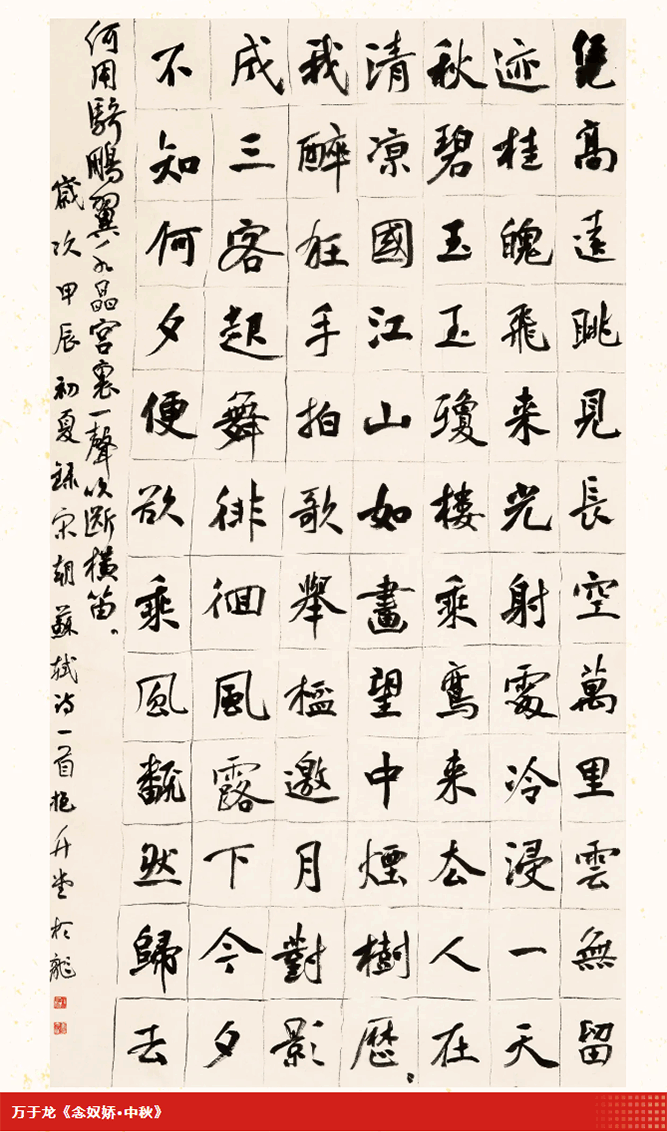 凭高遠眺見長空萬里雲無留
迹桂魄飛来光射處冷浸一天
秋碧玉玉瓊樓乘鸞来去人在
清凉國江山如畫望中煙樹歷々
我醉狂手拍歌舉邀月對影
成三客起舞徘徊風露下今夕
不知何夕便欲乘風翻然歸去
何用騎鵬翼水晶宮裏一聲吹斷橫笛。
歲次甲辰初夏録宋朝蘇軾诗一首挹升堂於龍
万于龙《念奴娇•中秋》